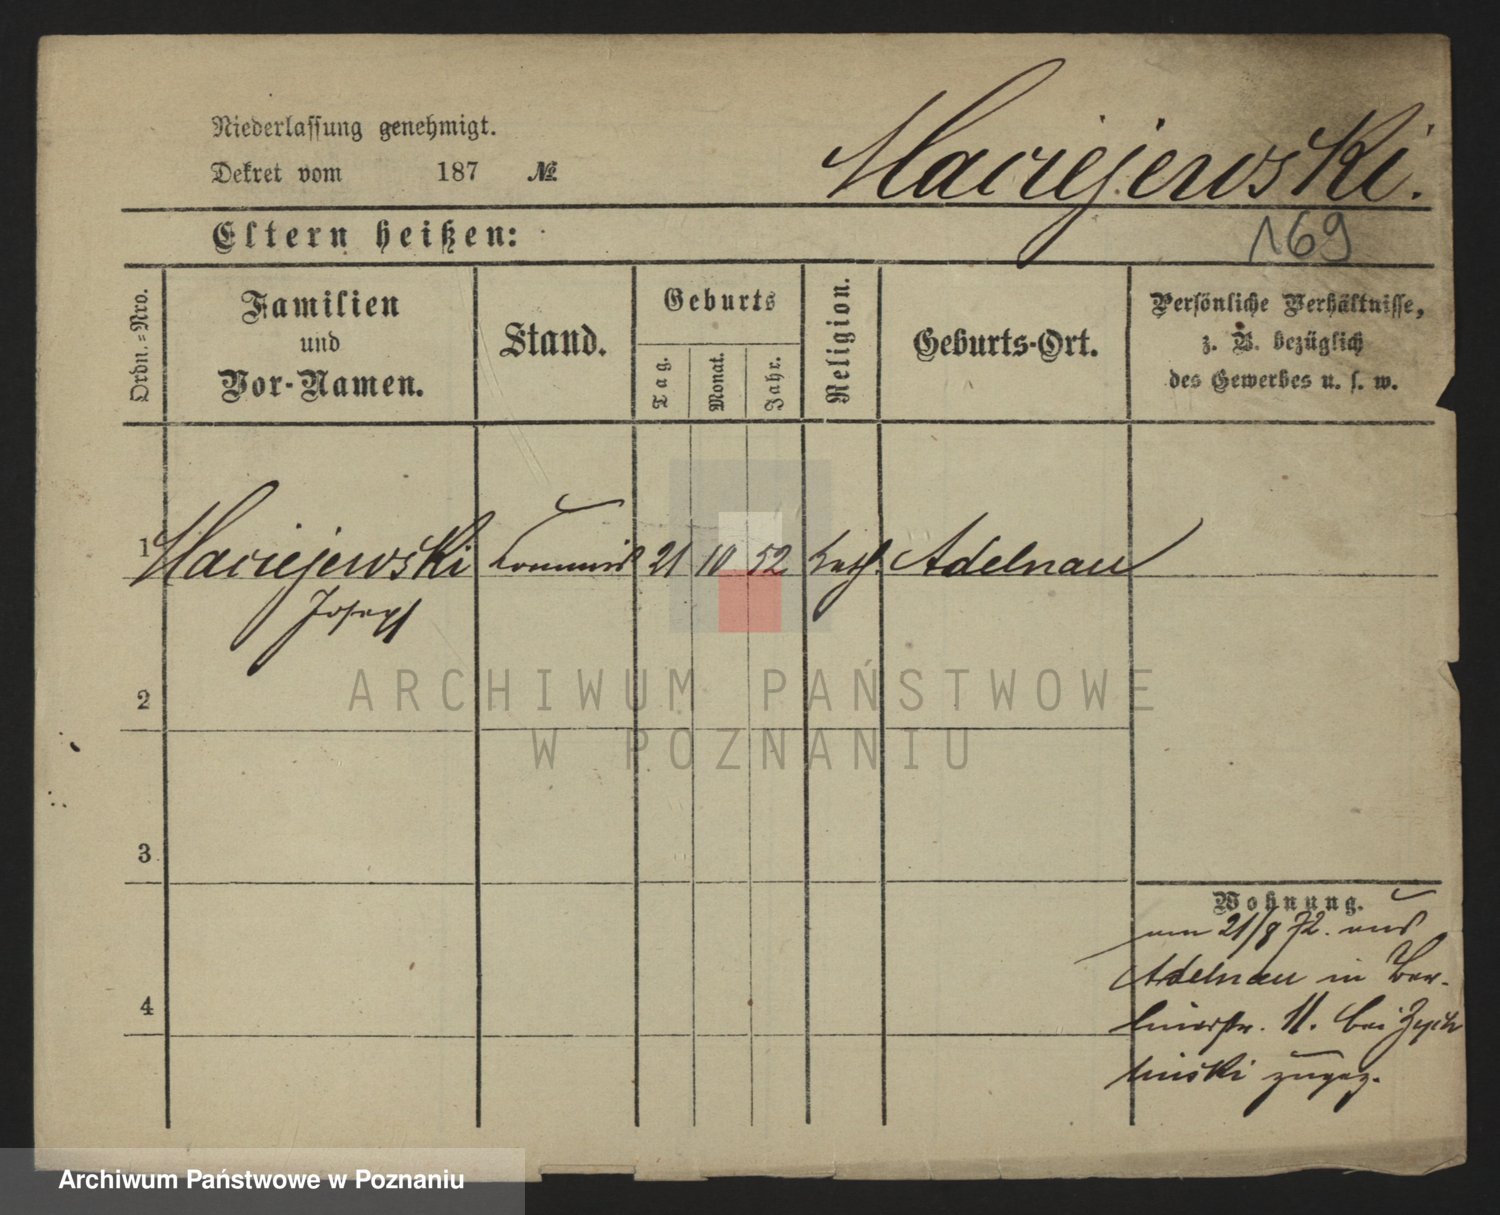 Niederlassung genehmigt.
Dekret vom 187 №
Maciejewski.
Eltern heißen:
169
Ordn.=Nro.
Familien
und
Vor-Namen.
Stand.
Geburts
Tag.
Monat.
Jahr.
Religion.
Geburts-Ort.
Persönliche Verhältnisse,
z. B. bezüglich
des Gewerbes u. s. w.
1 Maciejewski Commis 21 10 52 kath. Adelnau
Joseph
2
3
4
Wohnung.
am 21/8 72. aus
Adelnau in Ber-
linerstr. 11. bei Zych
linski zugez.
ARCHIWUM PAŃSTWOWE
W POZNANIU
Archiwum Państwowe w Poznaniu